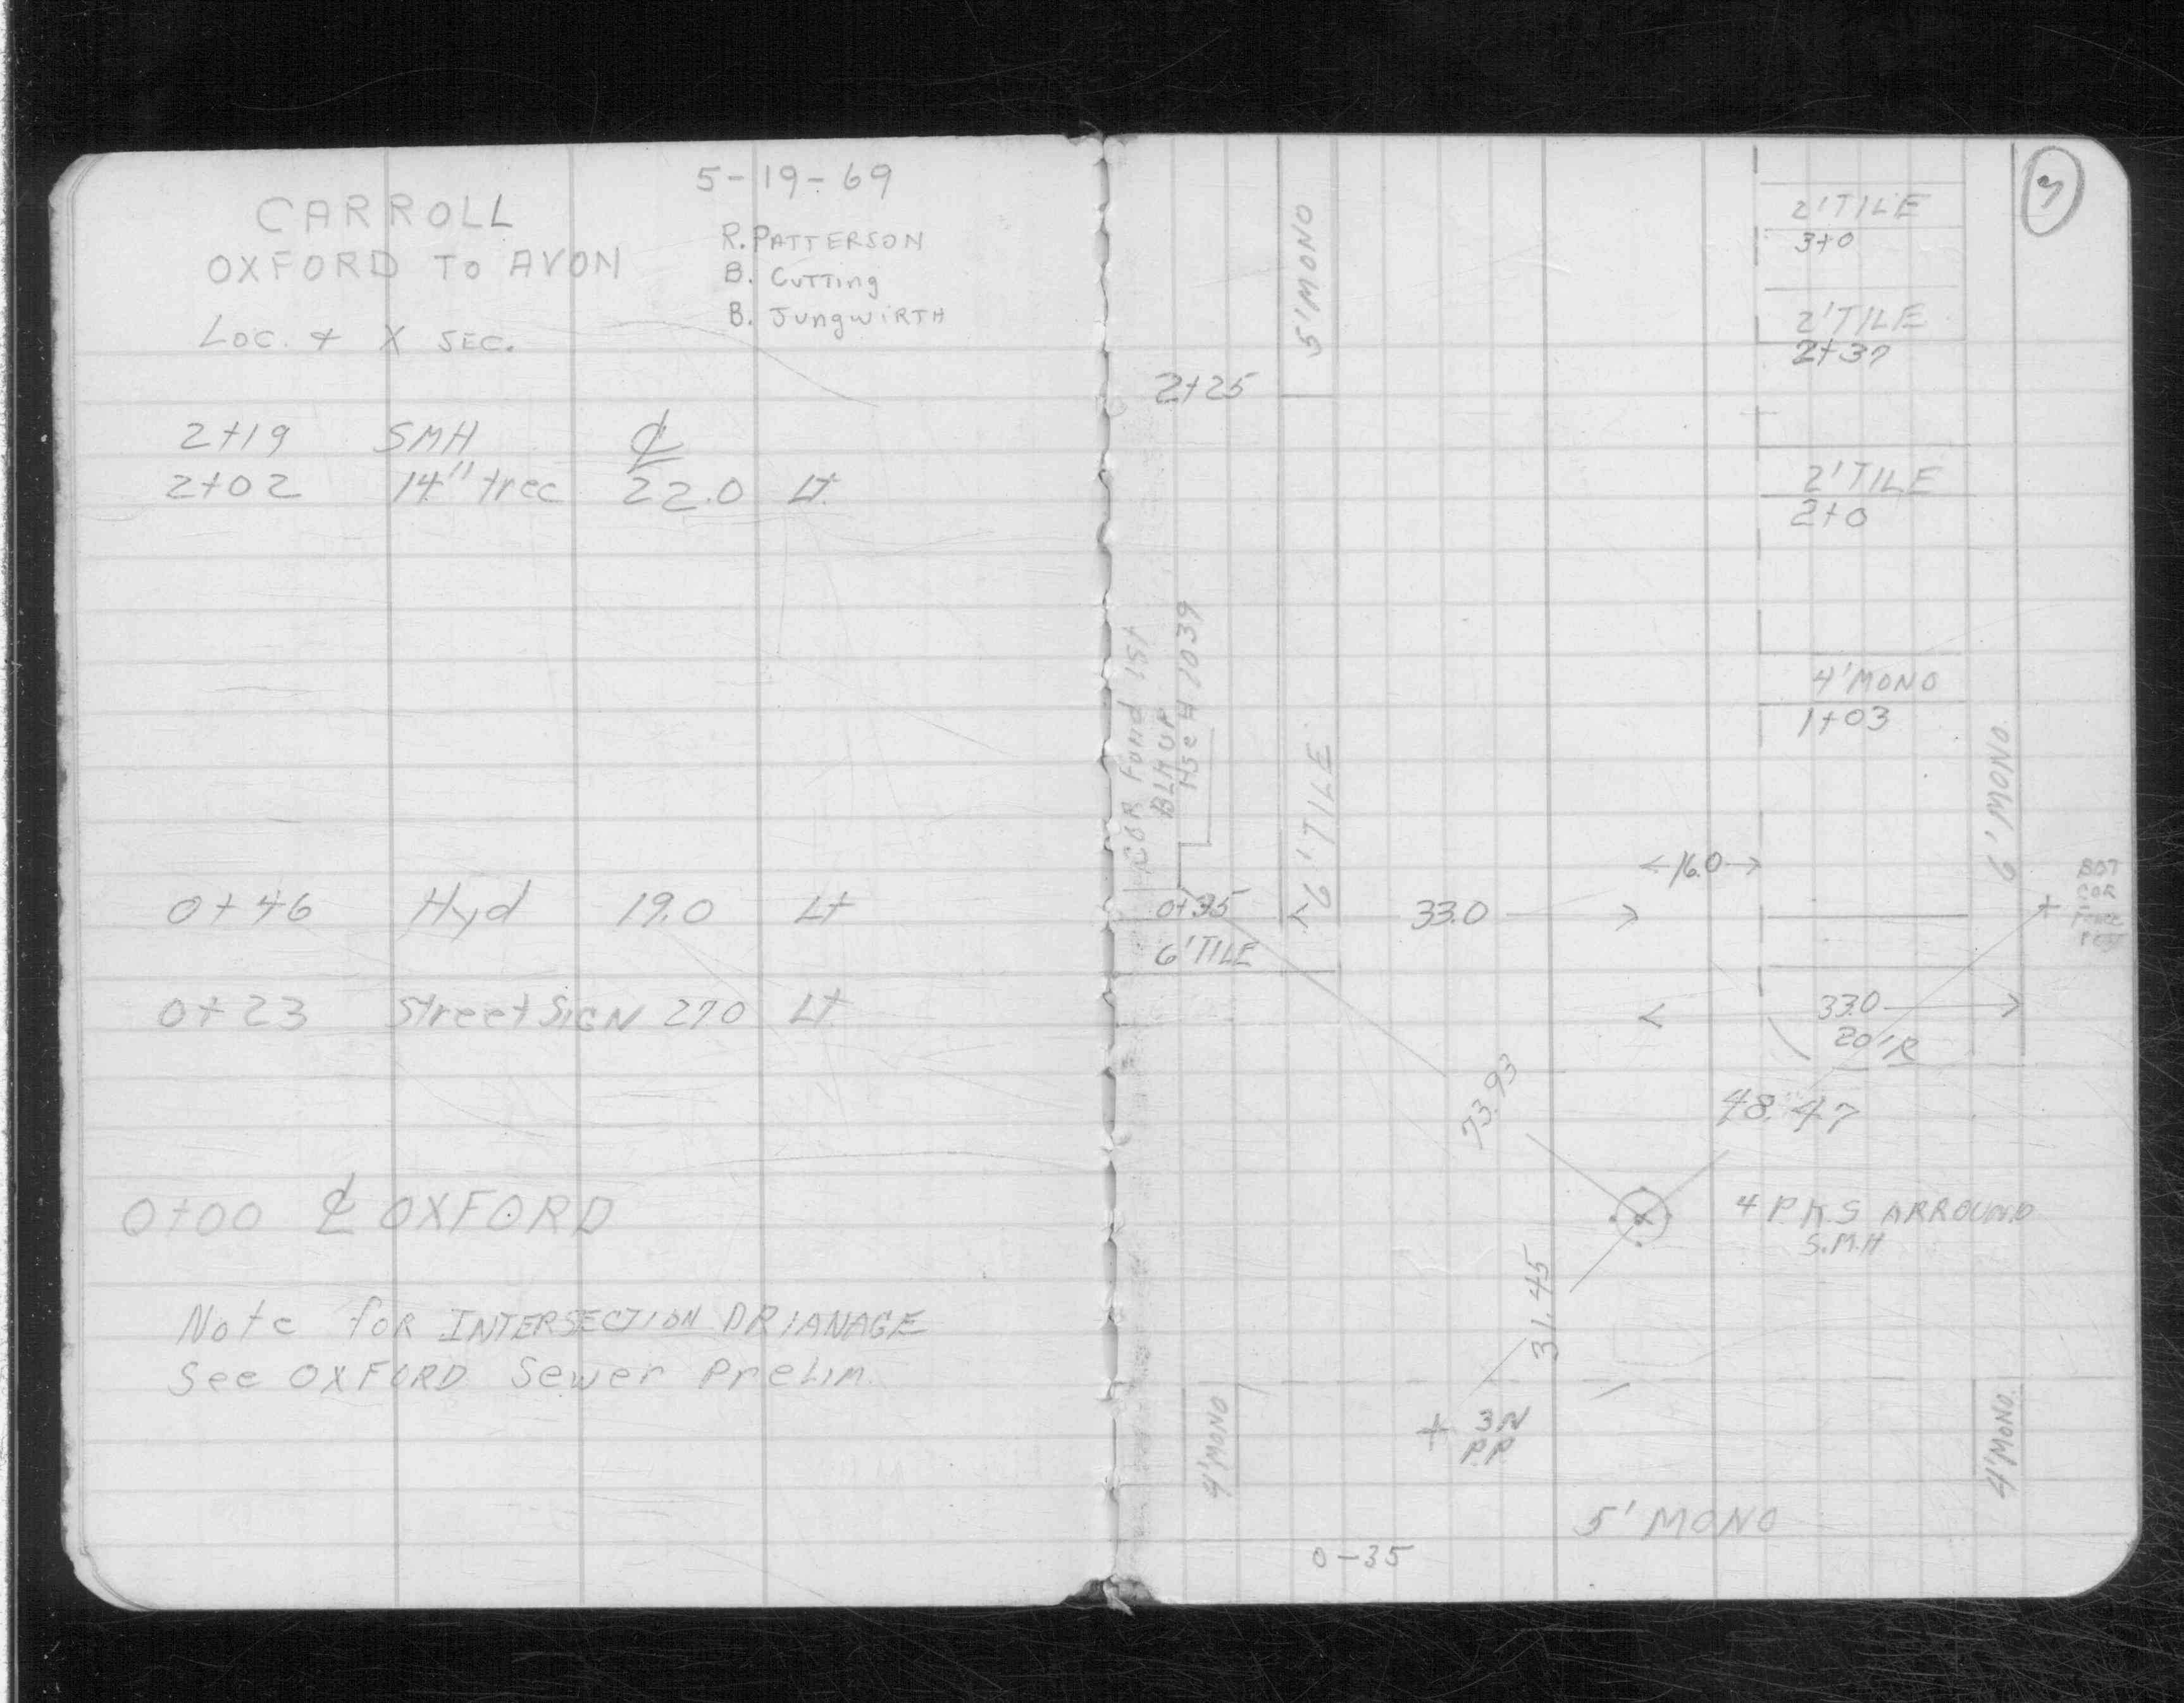 5-19-69
CARROLL
OXFORD TO AVON
Loc. + X SEC.
R. PATTERSON
B. CUTTing
B. JUngwiRTH
2+19 SMH ℄
2+02 14" tree 22.0 Lt.
0+46 Hyd 19.0 Lt
0+23 Street SIGN 27.0 Lt.
0+00 ℄ OXFORD
Note foR INTERSECTION DRIANAGE
See OXFORD Sewer PreLim.
2'TILE
3+0
5'MONO
2'TILE
2+37
2+25
2'TILE
2+0
COR Fund 1st
Hse # 1039
4'MONO
1+03
6'TILE
6'MONO
←16.0→
33.0
6'TILE
BOT
COR
Fence
33.0
20'R
73.93
48.47
4 P.K.S ARROUND
S.M.H
31.45
+ 3N
PP
4'MONO
4'MONO
5' MONO
0-35